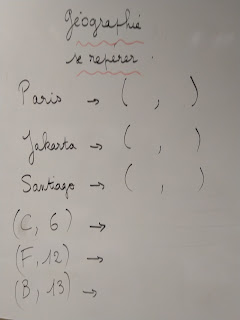 Géographie
se repérer.
Paris → ( , )
Jakarta → ( , )
Santiago → ( , )
(C, 6) →
(F, 12) →
(B, 13) →